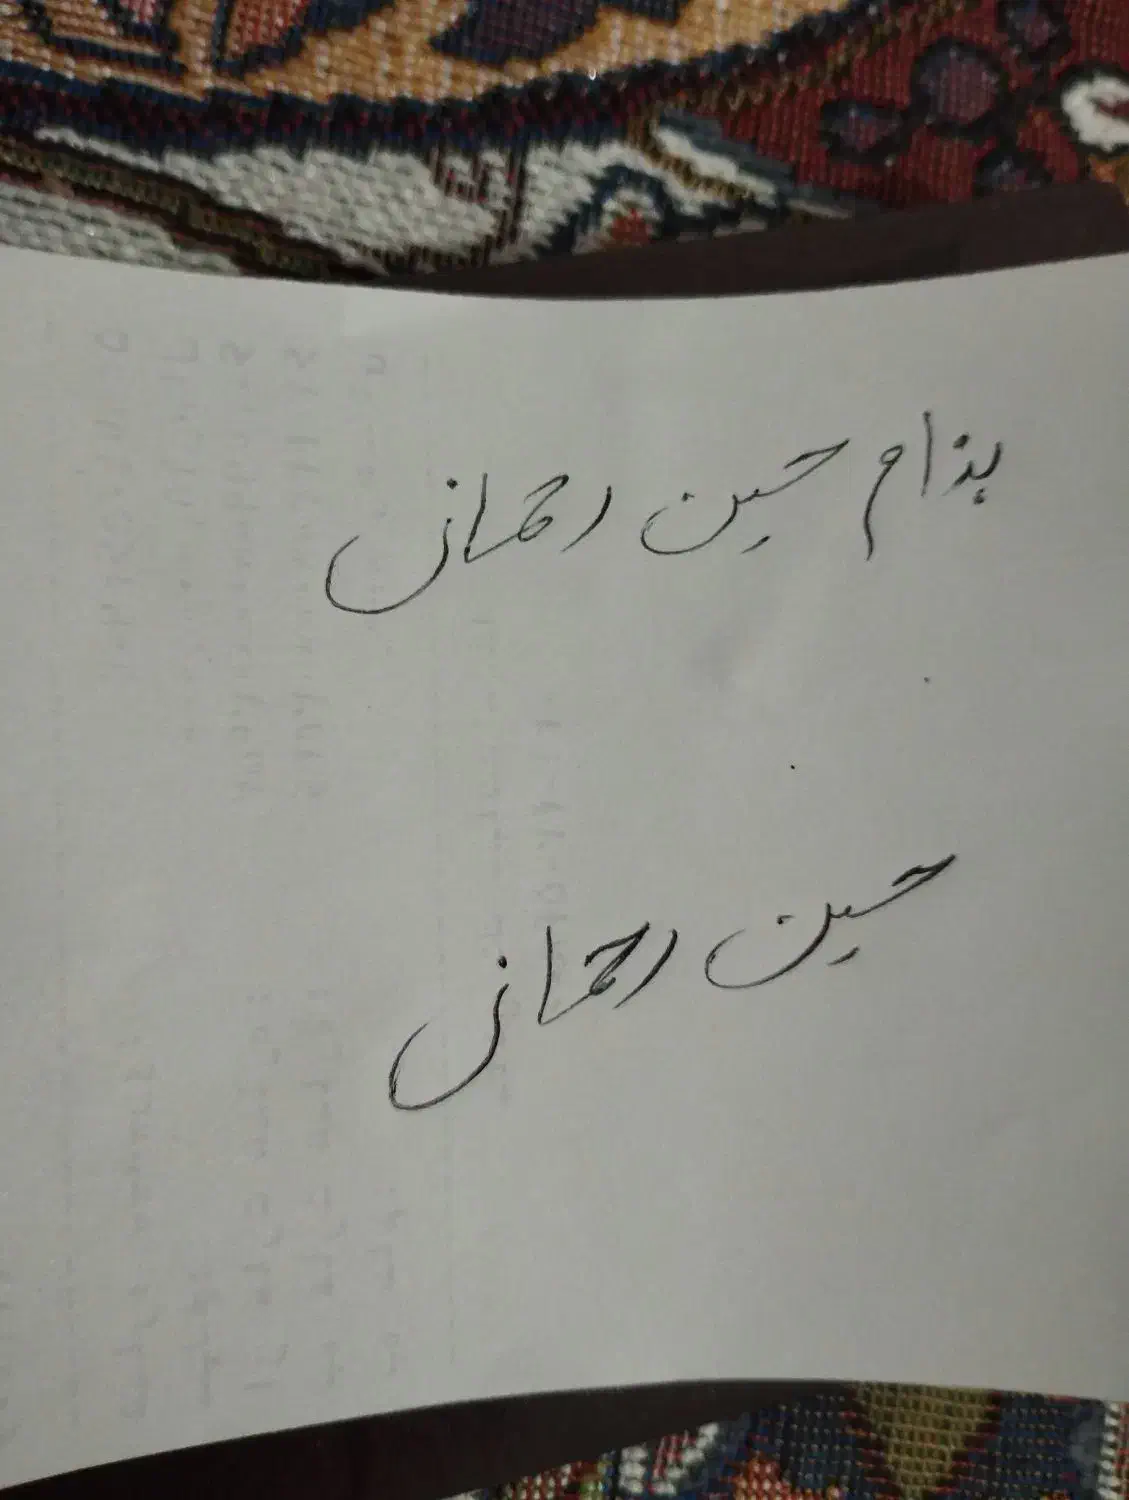 بنام حسین رحمانی
حسین رحمانی